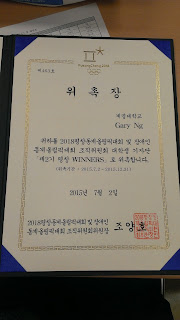 PyeongChang 2018
제463호
위촉장
계명대학교
Gary Ng
귀하를 2018평창동계올림픽대회 및 장애인
동계올림픽대회 조직위원회 대학생 기자단
「제2기 평창 WINNERS」로 위촉합니다.
2015년 7월 2일
2018평창동계올림픽대회 및 장애인
동계올림픽대회 조직위원회위원장
조양호